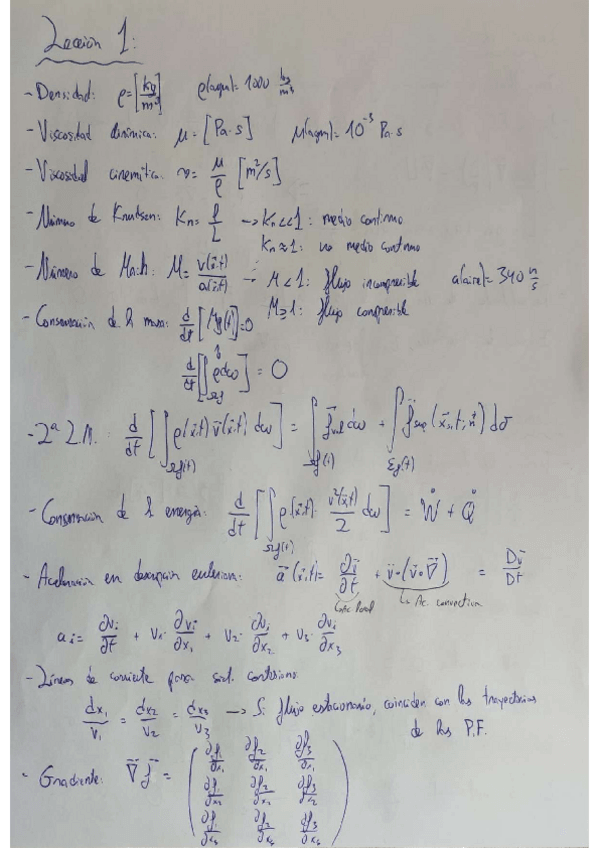 Lección 1:
- Densidad: ρ=[kg/m³] ρ(agua)= 1000 kg/m³
- Viscosidad dinámica: μ = [Pa·s] μ(agua)= 10⁻³ Pa·s
- Viscosidad cinemática: ν= μ/ρ [m²/s]
- Número de Knudsen: Kn= l/L → Kn<<1: medio continuo
Kn≈1: no medio continuo
- Número de Mach: M= v(x⃗,t)/a(x⃗,t) → M<1: flujo incompresible a(aire)= 340 m/s
M≥1: flujo compresible
- Conservación de la masa: d/dt [Mf(t)]=0
d/dt [∫Ωf ρdω] = 0
- 2ª L.N. d/dt [∫Ωf(t) ρ(x⃗,t) v⃗(x⃗,t) dω] = ∫Ωf(t) f⃗vol dω + ∫Σf(t) f⃗sup (x⃗,t; n⃗) dσ
- Conservación de la energía: d/dt [∫Ωf(t) ρ(x⃗,t) · v²(x⃗,t)/2 dω] = Ẇ + Q̇
- Aceleración en descripción euleriana: a⃗(x⃗,t)= ∂v⃗/∂t + v⃗·(v⃗·∇⃗) = Dv⃗/Dt
↳ Ac. local ↳ Ac. convectiva
ai= ∂vi/∂t + v1· ∂vi/∂x1 + v2· ∂vi/∂x2 + v3· ∂vi/∂x3
- Líneas de corriente para sist. cartesiano:
dx1/v1 = dx2/v2 = dx3/v3 → Si flujo estacionario, coinciden con las trayectorias
de las P.F.
- Gradiente: ∇⃗f⃗ = ( ∂f1/∂x1 ∂f2/∂x1 ∂f3/∂x1
∂f1/∂x2 ∂f2/∂x2 ∂f3/∂x2
∂f1/∂x3 ∂f2/∂x3 ∂f3/∂x3 )